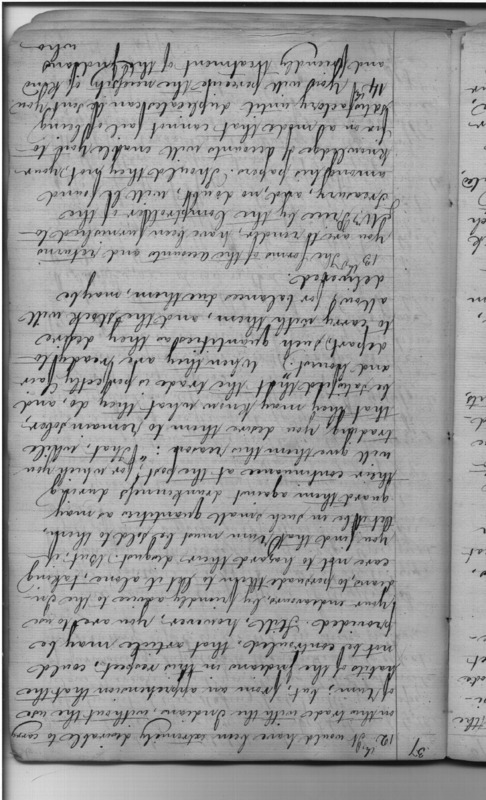 37
12thly It would have been extremely desirable to carry
on this trade with the Indians without the use
of rum; but, from an apprehension that the
habits of the Indians in this respect, could
not be controuled, that article may be
provided. Still, however, you are to use
your endeavours, by friendly advice to the In-
dians, to persuade them to let it alone, taking
care not to hazard their disgust. But, if
you find that rum must be sold to them,
let it be in such small quantities as may
guard them against drunkenness during
their continuance at the post; for which you
will give them this reason: "that, while
trading, you desire them to remain sober,
that they may know what they do, and,
be satisfied that the trade is perfectly fair
and honest." When they are ready to
depart, such quantities as they desire
to carry with them, and the stock will
allow, for balances due them, may be
delivered.
13thly The forms of the accounts and returns
you are to render, have been furnished to
Mr Price by the Comptroller of the
Treasury, and, no doubt, will be found
among his papers. Should they not, your
knowledge of accounts will enable you to
fix on a mode that cannot fail of being
satisfactory until duplicates can be sent you
14thly You will perceive the necessity of kind
and friendly treatment of the Indians
who